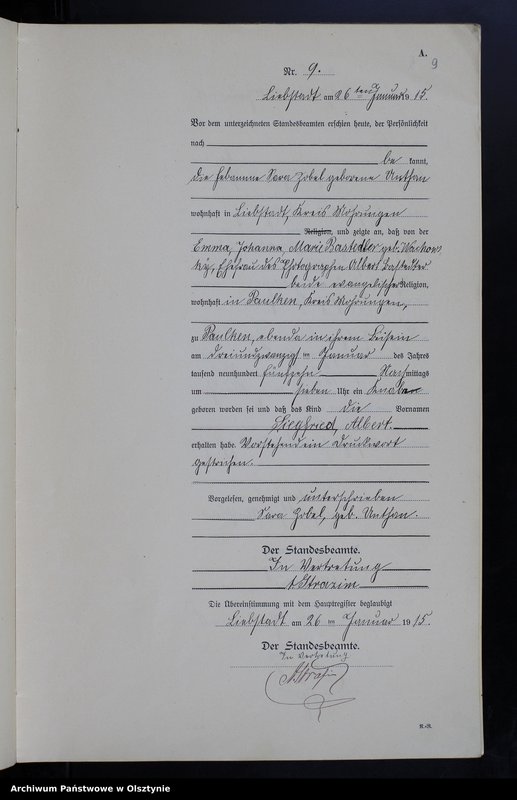 A.
9
Nr. 9.
Liebstadt am 26 ten Januar 1915.
Vor dem unterzeichneten Standesbeamten erschien heute, der Persönlichkeit
nach
be kannt,
die Hebamme Sara Zobel geborene Unthan
wohnhaft in Liebstadt, Kreis Mohrungen
Religion, und zeigte an, daß von der
Emma, Johanna, Marie Bastedler geb. Wachow=
sky, Ehefrau des Photographen Albert Bastedler
beide evangelischer Religion,
wohnhaft in Paulken, Kreis Mohrungen,
zu Paulken, ebenda in ihrem Beisein
am dreiundzwanzigsten Januar des Jahres
tausend neunhundert fünfzehn Nachmittags
um sieben Uhr ein Knabe
geboren worden sei und daß das Kind die Vornamen
Siegfried, Albert.
erhalten habe. Vorstehend ein Druckwort
gestrichen.
Vorgelesen, genehmigt und unterschrieben
Sara Zobel, geb. Unthan.
Der Standesbeamte.
In Vertretung
Die Übereinstimmung mit dem Hauptregister beglaubigt
Liebstadt am 26 ten Januar 1915.
Der Standesbeamte.
In Vertretung
Archiwum Państwowe w Olsztynie